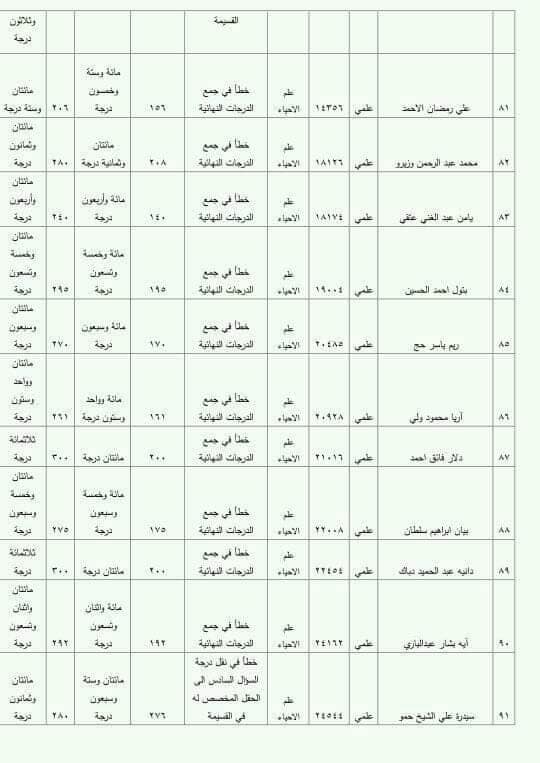 القسيمة وثلاثون
درجة
٨١ علي رمضان الاحمد علمي ١٤٣٥٦ علم الاحياء خطأ في جمع الدرجات النهائية ١٥٦ مائة وستة وخمسون درجة ٢٠٦ مائتان وستة درجة
٨٢ محمد عبد الرحمن وزيرو علمي ١٨١٢٦ علم الاحياء خطأ في جمع الدرجات النهائية ٢٠٨ مائتان وثمانية درجة ٢٨٠ مائتان وثمانون درجة
٨٣ يامن عبد الغني عتقي علمي ١٨١٧٤ علم الاحياء خطأ في جمع الدرجات النهائية ١٤٠ مائة وأربعون درجة ٢٤٠ مائتان وأربعون درجة
٨٤ بتول احمد الحسين علمي ١٩٠٠٤ علم الاحياء خطأ في جمع الدرجات النهائية ١٩٥ مائة وخمسة وتسعون درجة ٢٩٥ مائتان وخمسة وتسعون درجة
٨٥ ريم ياسر حج علمي ٢٠٤٨٥ علم الاحياء خطأ في جمع الدرجات النهائية ١٧٠ مائة وسبعون درجة ٢٧٠ مائتان وسبعون درجة
٨٦ آريا محمود ولي علمي ٢٠٩٢٨ علم الاحياء خطأ في جمع الدرجات النهائية ١٦١ مائة وواحد وستون درجة ٢٦١ مائتان وواحد وستون درجة
٨٧ دلار فائق احمد علمي ٢١٠١٦ علم الاحياء خطأ في جمع الدرجات النهائية ٢٠٠ مائتان درجة ٣٠٠ ثلاثمائة درجة
٨٨ بيان ابراهيم سلطان علمي ٢٢٠٠٨ علم الاحياء خطأ في جمع الدرجات النهائية ١٧٥ مائة وخمسة وسبعون درجة ٢٧٥ مائتان وخمسة وسبعون درجة
٨٩ دانيه عبد الحميد دباك علمي ٢٢٤٥٤ علم الاحياء خطأ في جمع الدرجات النهائية ٢٠٠ مائتان درجة ٣٠٠ ثلاثمائة درجة
٩٠ آيه بشار عبدالباري علمي ٢٤١٦٢ علم الاحياء خطأ في جمع الدرجات النهائية ١٩٢ مائة واثنان وتسعون درجة ٢٩٢ مائتان واثنان وتسعون درجة
٩١ سيدرة علي الشيخ حمو علمي ٢٤٥٤٤ علم الاحياء خطأ في نقل درجة السؤال السادس الى الحقل المخصص له في القسيمة ٢٧٦ مائتان وستة وسبعون درجة ٢٨٠ مائتان وثمانون درجة